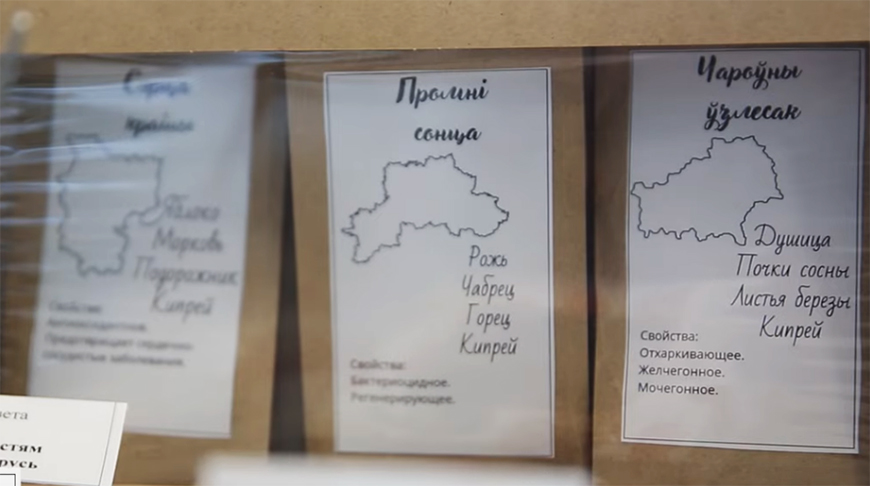 Сэрца
краіны
Яблоко
Морковь
Подорожник
Кипрей
Свойства:
Антиоксидантное.
Предотвращает сердечно-
сосудистые заболевания.
Промні
сонца
Рожь
Чабрец
Горец
Кипрей
Свойства:
Бактериоцидное.
Регенерирующее.
Чароўны
ўзлесак
Душица
Почки сосны
Листья березы
Кипрей
Свойства:
Отхаркивающее.
Желчегонное.
Мочегонное.